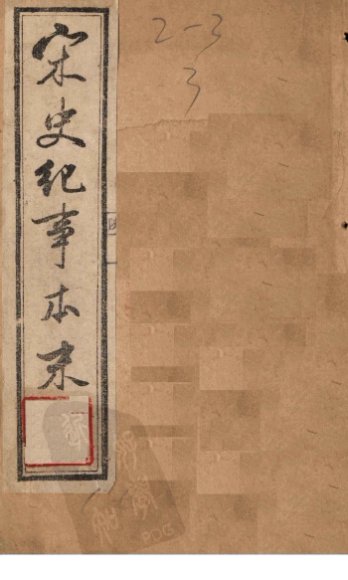 宋史紀事本末
2-3
3
PDG